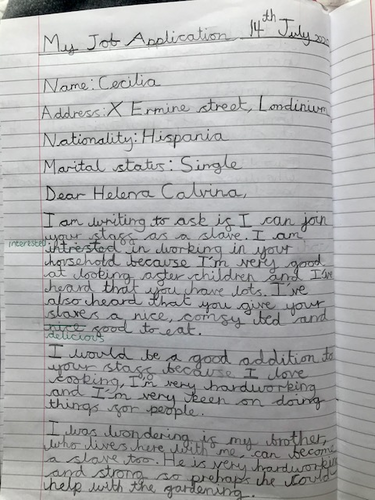 My Job Application 14th July
Name: Cecilia
Address: X Ermine street, Londinium
Nationality: Hispania
Marital status: Single
Dear Helena Calvina,
I am writing to ask if I can join
your staff as a slave. I am
interested
intrested in working in your
household because I'm very good
at looking after children and I've
heard that you have lots. I've
also heard that you give your
slaves a nice, comfy bed and
nice food to eat.
delicious
I would be a good addition to
your staff because I love
cooking, I'm very hardworking
and I'm very keen on doing
things for people.
I was wondering if my brother,
who lives here with me can become
a slave too. He is very hardworking
and strong so prehaps he could
help with the gardening.